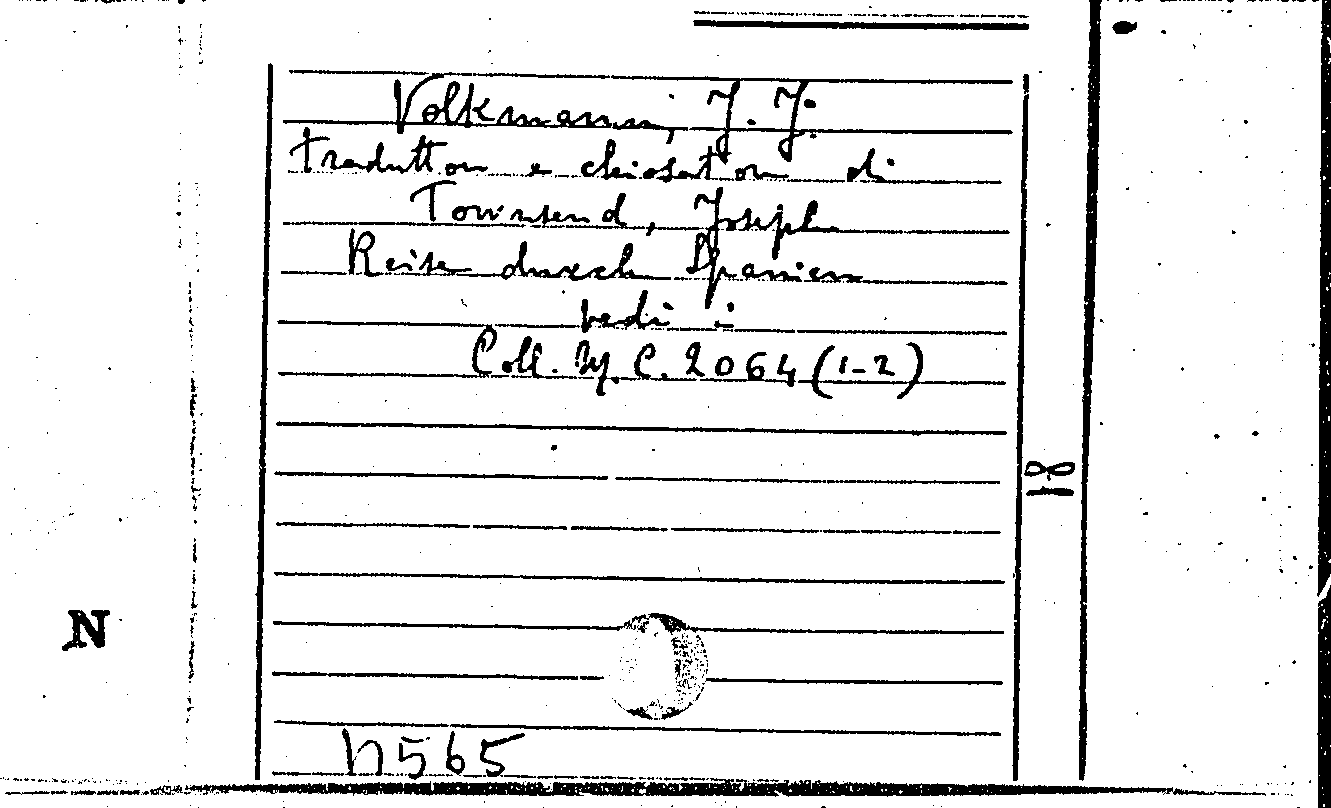 Volkmann, J. J.
traduttore e chiosatore di
Townsend, Joseph
Reise durch Spanien
vedi :
Coll. C. 2064 (1-2)
N
n565